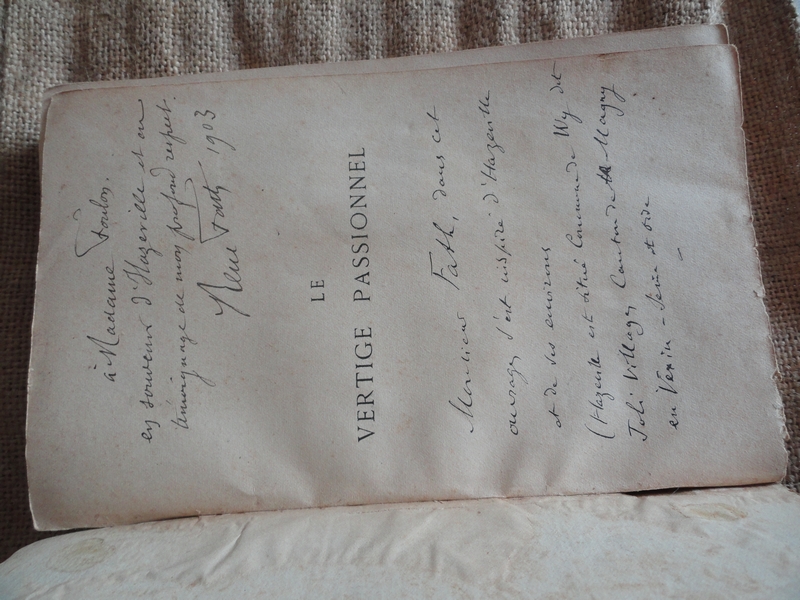 à Madame Foulon.
en souvenir d'Hazeville et en
témoignage de mon profond respect.
René Fath 1903
LE
VERTIGE PASSIONNEL
Monsieur Fath, dans cet
ouvrage, s'est inspiré d'Hazeville
et de ses environs
(Hazeville est situé Commune de Wy dit
Joli Village, Canton de Magny
en Vexin - Seine et Oise